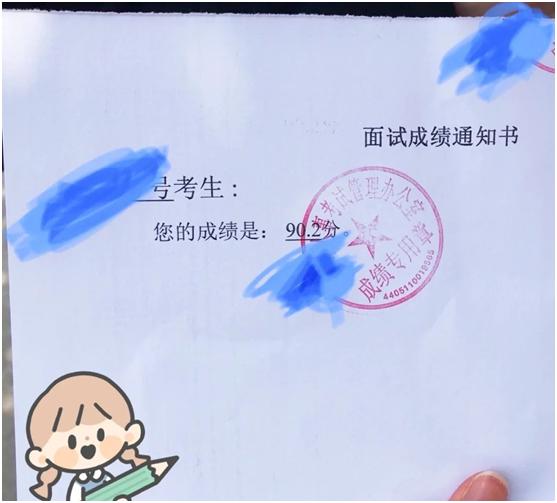 面试成绩通知书
号考生：
您的成绩是：90.2分。
考试管理办公室
成绩专用章
4405110019565